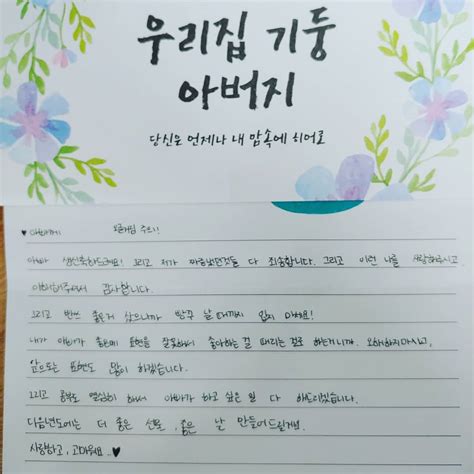 우리집 기둥
아버지
당신은 언제나 내 맘속에 히어로
♥ 아빠에게
아빠 생신축하드려요! 그리고 제가 마음보단것들 다 죄송합니다. 그리고 이런 나를 사랑해주시고
이해해주셔서 감사합니다.
그리고 반쓰 좋은거 샀으니까 빵꾸 날 때까지 입지 마세요!
내가 아빠가 좋은데 표현을 잘못해서 좋아하는 걸 때리는 걸로 하는거니까. 오해하지마시고,
앞으로는 표현도 많이 하겠습니다.
그리고 공부도 열심히 해서 아빠가 하고 싶은 일 다 해드리겠습니다.
다음년도에는 더 좋은 선물, 좋은 날 만들어드릴게요.
사랑하고, 고마워요..♥